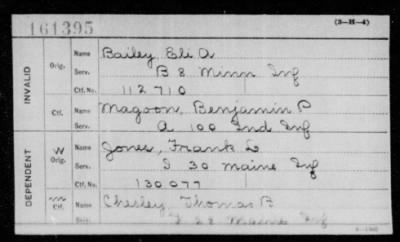 161395
(3-H-4)
INVALID
Orig.
Name Bailey, Eli A
Serv. B 8 Minn Inf
Ctf. No. 112710
Ctf.
Name Magoon, Benjamin P
Serv. A 100 Ind Inf
DEPENDENT
W Orig.
Name Jones, Frank L.
Serv. 30 Maine Inf
Ctf. No. 130077
Ctf.
Name Chesley Thomas B
28 Maine Inf